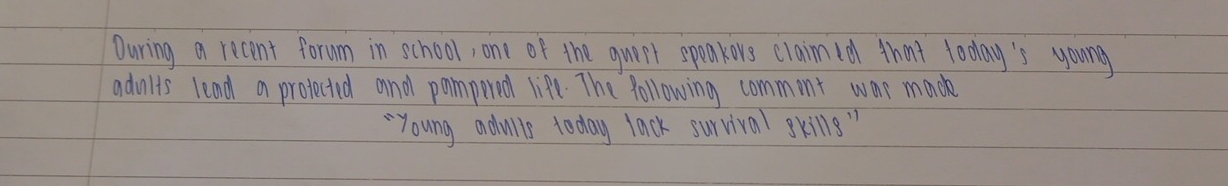 During a recent forum in school, one of the guest speakers claimed that today's young
adults lead a protected and pampered life. The following comment was made
"Young adults today lack survival skills"